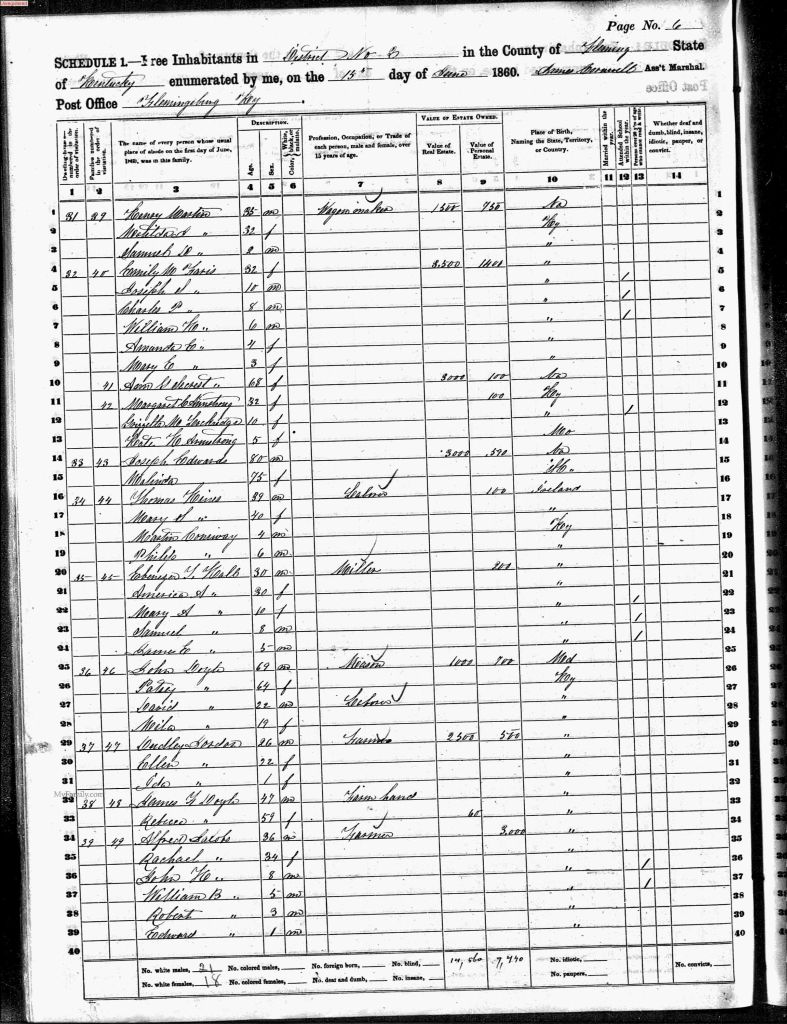 Page No. 6
SCHEDULE 1.—Free Inhabitants in District No 2 in the County of Fleming State
of Kentucky enumerated by me, on the 15th day of June 1860. Ass't Marshal.
Post Office Flemingsburg Ky
Dwelling-houses numbered in the order of visitation.
Families numbered in the order of visitation.
The name of every person whose usual place of abode on the first day of June, 1860, was in this family.
DESCRIPTION.
Age.
Sex.
Color, White, black, or mulatto.
Profession, Occupation, or Trade of each person, male and female, over 15 years of age.
VALUE OF ESTATE OWNED.
Value of Real Estate.
Value of Personal Estate.
Place of Birth, Naming the State, Territory, or Country.
Married within the year.
Attended School within the year.
Persons over 20 y'rs of age who cannot read & write.
Whether deaf and dumb, blind, insane, idiotic, pauper, or convict.
1 2 3 4 5 6 7 8 9 10 11 12 13 14
1 31 39 Henry Martin 35 m Wagonmaker 1500 750 Va
2 Matilda A " 32 f Ky
3 Samuel D " 2 m "
4 32 40 Emily W 32 f 3,500 1400 "
5 Joseph S " 10 m " 1
6 Charles P " 8 m " 1
7 William H " 6 m " 1
8 Amanda E " 4 f "
9 Mary E " 3 f "
10 41 Secrest " 68 f 3000 100 Va
11 42 Margaret E Armstrong 32 f 100 Ky
12 10 f " 1
13 Kate H Armstrong 5 f Mo
14 33 43 Joseph Edwards 80 m 3000 Va
15 Malinda 75 f "
16 34 44 Thomas Hines 39 m Labour 100 Ireland
17 Mary " 40 f "
18 Martin Conway 4 m Ky
19 Philip " 6 m "
20 35 45 Ebenezer 30 m Miller 200 "
21 America A " 30 f "
22 Mary A " 10 f " 1
23 Samuel " 8 m " 1
24 James E " 5 m " 1
25 36 46 John Doyle 69 m Mason 1000 700 Md
26 Patsy " 64 f Ky
27 David " 22 m Labour "
28 Mila " 19 f "
29 37 47 Dudley 26 m Farmer 2500 500 "
30 Ellen " 22 f "
31 Ida " 1 f "
32 38 48 James Doyle 47 m Farm hand "
33 Rebecca " 59 f 60 "
34 39 49 Alfred Jacobs 36 m Farmer 3,000 "
35 Rachael " 34 f "
36 John H " 8 m " 1
37 William B " 5 m " 1
38 Robert " 3 m "
39 Edward " 1 m "
40
No. white males, 21 No. colored males, No. foreign born, No. blind, 14,560 7,740 No. idiotic, No. convicts,
No. white females, 18 No. colored females, No. deaf and dumb, No. insane, No. paupers,
MyFamily.com